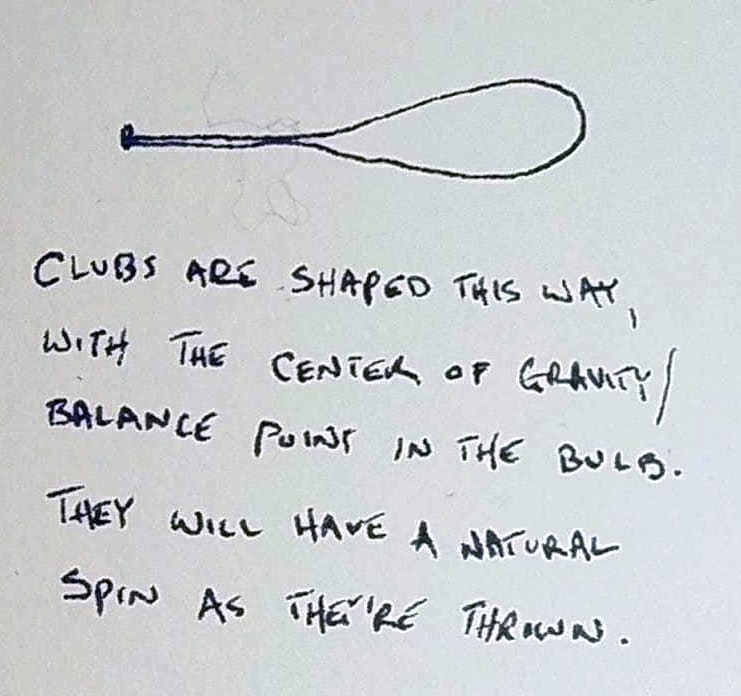 CLUBS ARE SHAPED THIS WAY,
WITH THE CENTER OF GRAVITY/
BALANCE POINT IN THE BULB.
THEY WILL HAVE A NATURAL
SPIN AS THEY'RE THROWN.